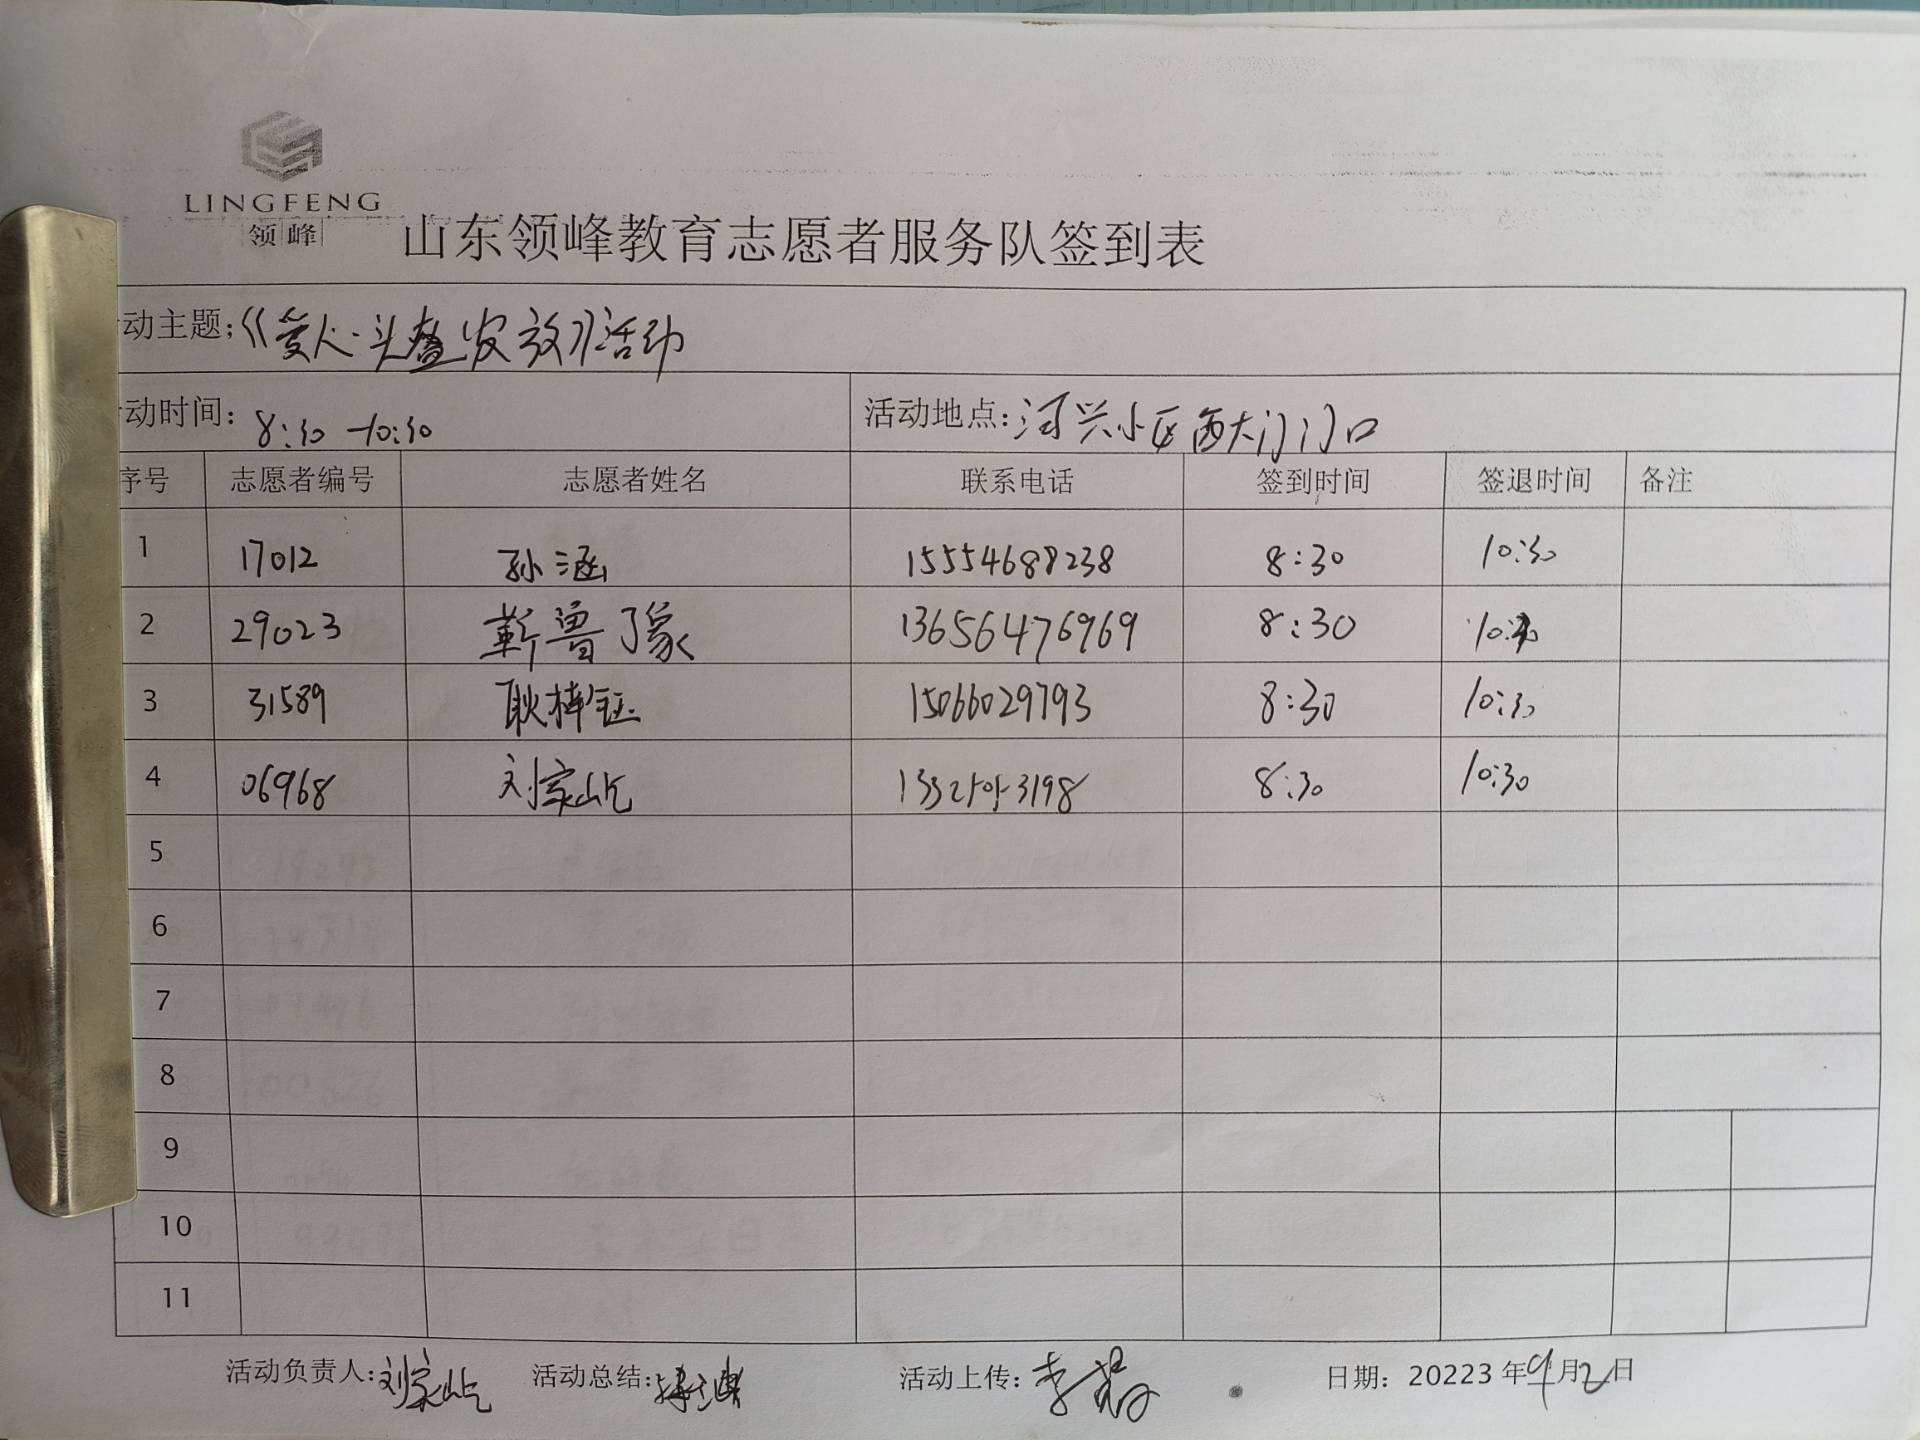 LINGFENG
领峰
山东领峰教育志愿者服务队签到表
动主题;《爱人·头盔发放》活动
动时间: 8:30-10:30 活动地点: 河兴小区西大门门口
序号 志愿者编号 志愿者姓名 联系电话 签到时间 签退时间 备注
1 17012 孙涵 15554688238 8:30 10:30
2 29023 靳鲁豫 13656476969 8:30
3 31589 耿梓钰 15066029793 8:30 10:30
4 06968 刘家屹 8:30 10:30
5
6
7
8
9
10
11
活动负责人:刘家屹 活动总结: 活动上传: 李 日期: 20223年9月2日